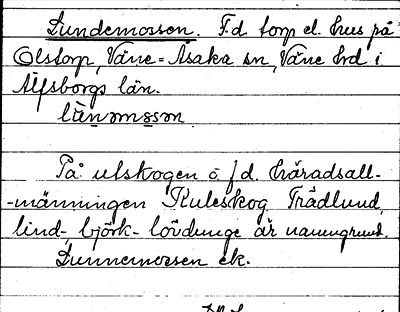 Lundemossen. F.d torp el. hus på
Olstorp, Väne-Åsaka sn, Väne hrd i
Älfsborgs län.
lùnəmɔsən
På utskogen å f.d. häradsall-
-männingen Kuleskog Trädlund,
lind-, björk- lövdunge är namngrund.
Lunnemossen ek.